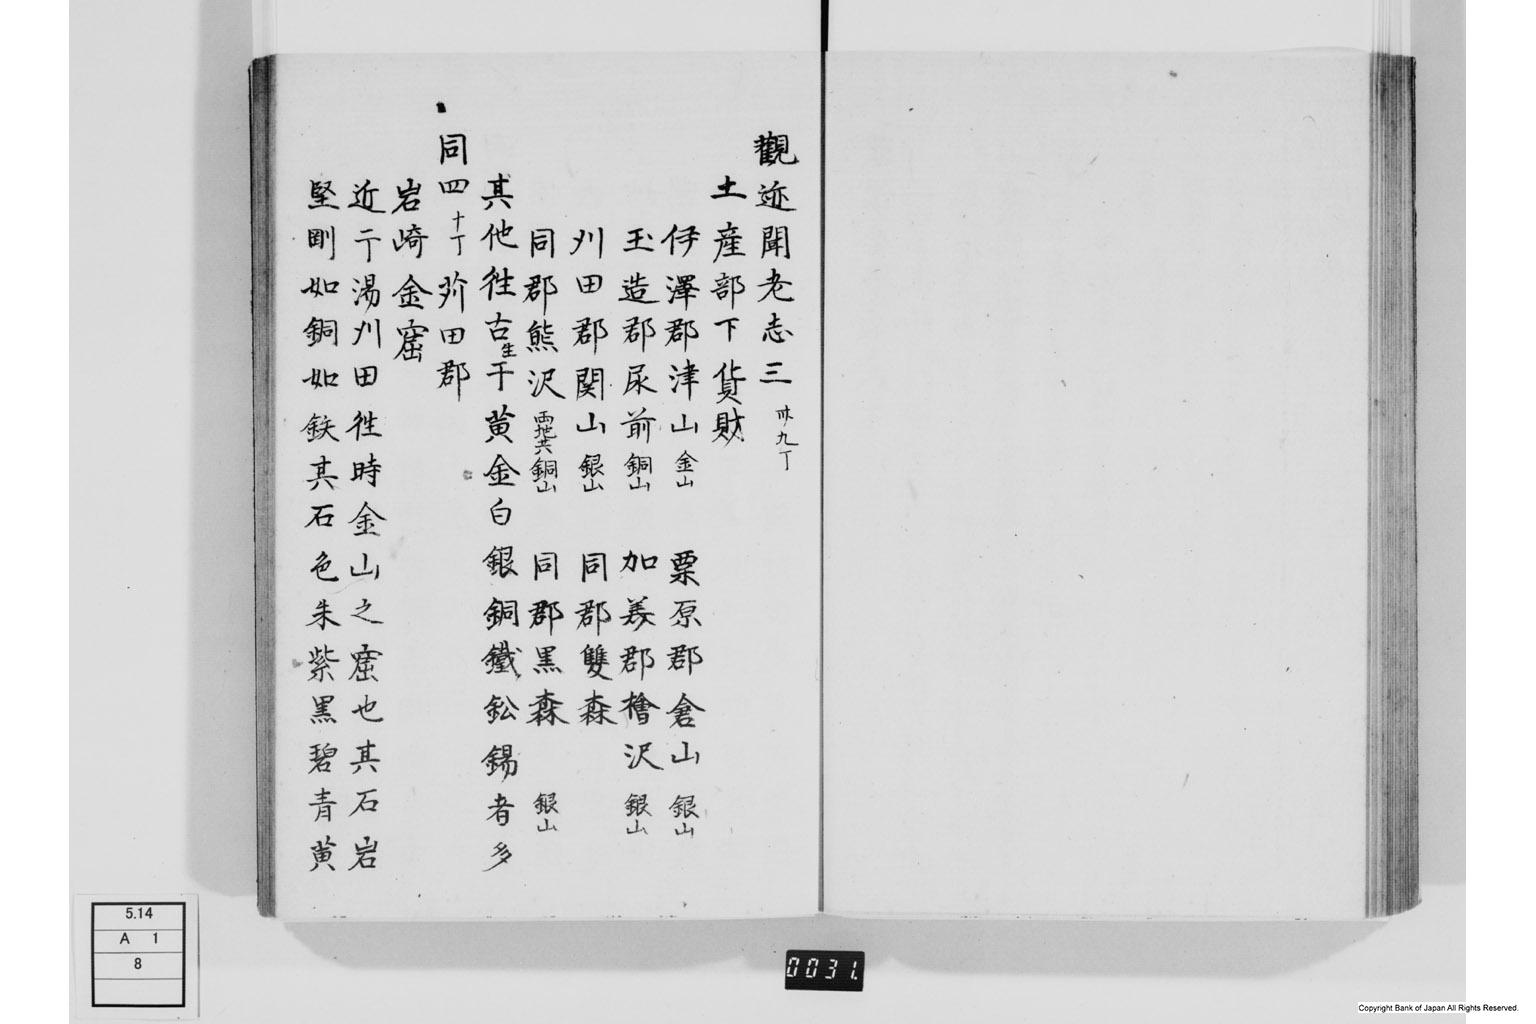 觀迹聞老志三 卅九丁
土産部下貨財
伊澤郡津山 金山 栗原郡倉山 銀山
玉造郡尿前 銅山 加美郡檜沢 銀山
刈田郡関山 銀山 同郡雙森
同郡熊沢 両地共銅山 同郡黒森 銀山
其他往古生于黄金白銀銅鐵鈆錫者多
同四 十丁 苅田郡
岩崎金窟
近于湯刈田往時金山之窟也其石岩
堅剛如銅如鉄其石色朱紫黒碧青黄
5.14
A 1
8
0031.
Copyright Bank of Japan All Rights Reserved.